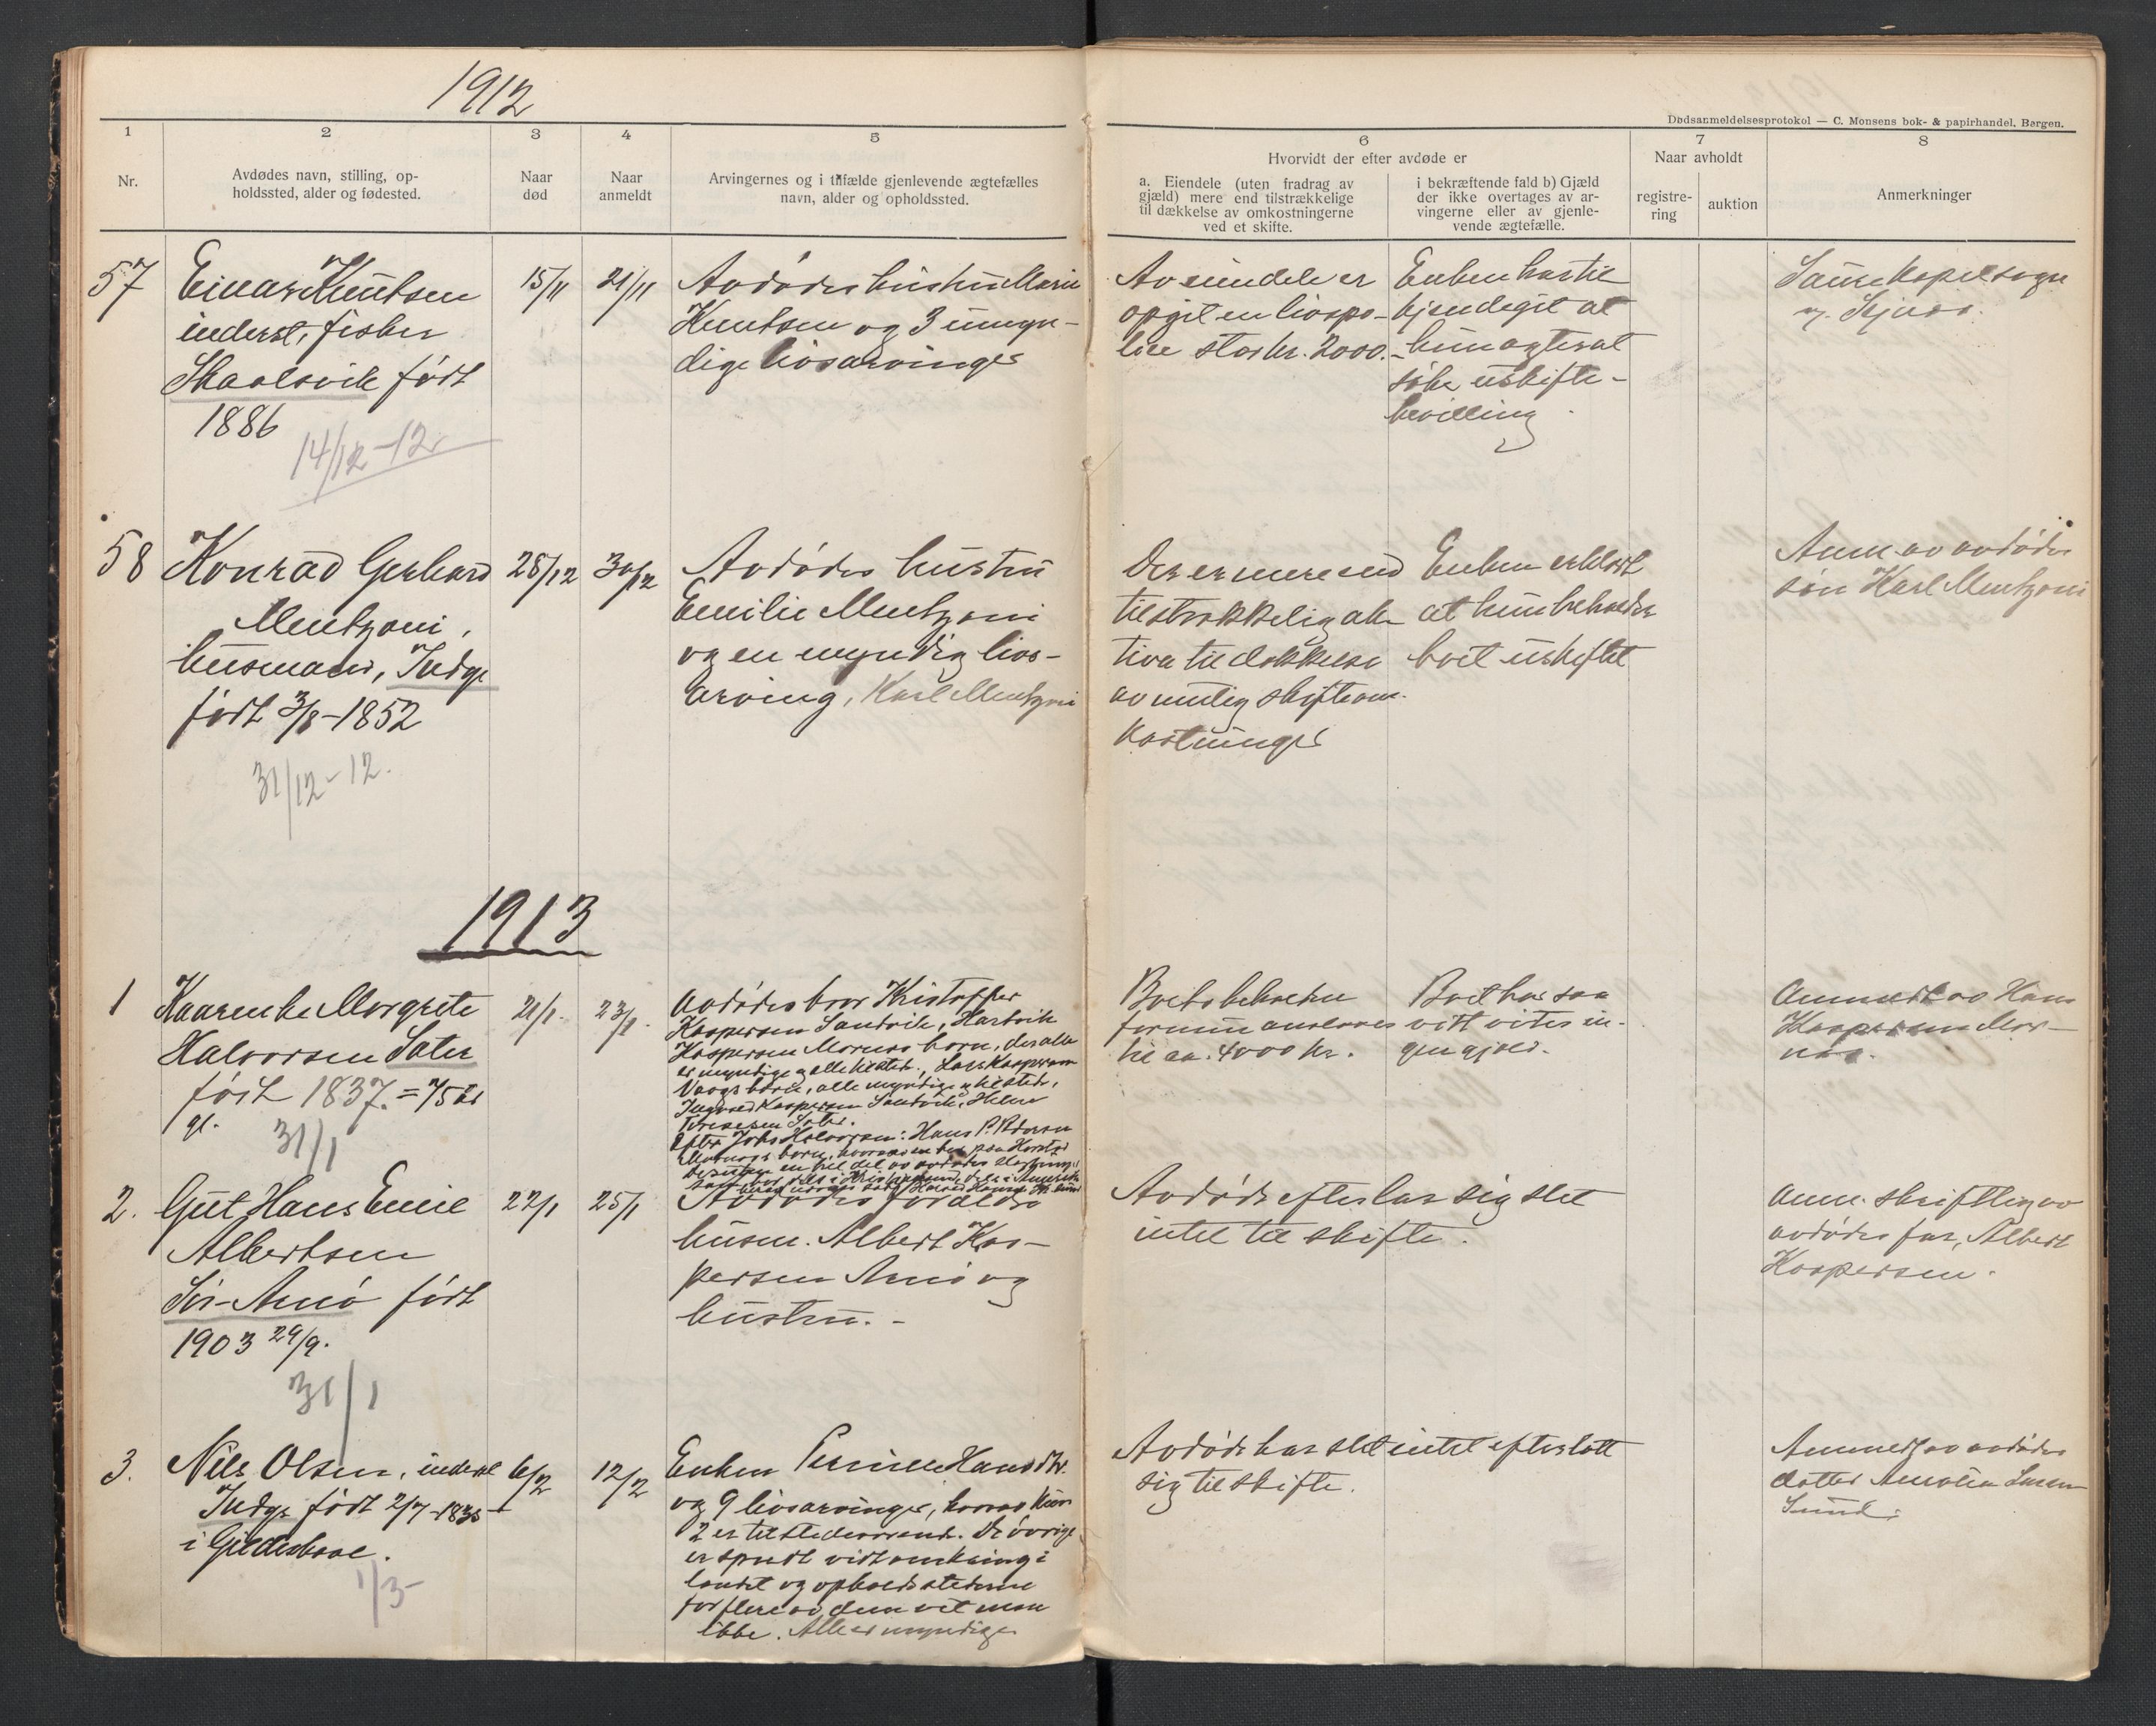 1912
Dødsanmeldelsesprotokol — C. Monsens bok- & papirhandel, Bergen.
1 2 3 4 5 6 7 8
Nr.
Avdødes navn, stilling, op-
holdssted, alder og fødested.
Naar
død
Naar
anmeldt
Arvingernes og i tilfælde gjenlevende ægtefælles
navn, alder og opholdssted.
Hvorvidt der efter avdøde er
a. Eiendele (uten fradrag av
gjæld) mere end tilstrækkelige
til dækkelse av omkostningerne
ved et skifte.
i bekræftende fald b) Gjæld
der ikke overtages av ar-
vingerne eller av gjenle-
vende ægtefælle.
Naar avholdt
registre-
ring
auktion
Anmerkninger
57
Einar Knutsen
inderst, fisker
Skaalsvik født
1886
14/12-12
15/11
21/11
Avdødes hustru Marie
Knutsen og 3 umyn-
dige livsarvinger
Av eiendele er
opgit en livspo-
lice stor kr. 2000.-
Enken har til
kjendegit at
hun agter at
søke uskifte-
bevilling
58
Konrad Gerhard
Mentzoni,
husmand, Indyr
født 3/8-1852
31/12-12.
28/12
30/12
Avdødes hustru
Emilie Mentzoni
og en myndig livs-
arving, Karl Mentzoni
Der er mere end
tilstrækkelig ak-
tiva til dækkelse
av mulig skifteom-
kostninger
Enken erklært
at hun beholder
boet uskiftet
Anm. av avdødes
søn Karl Mentzoni
1913
1
Kaarenke Margrete
Halvorsen Sæter
født 1837. = 75 år
gl.
31/1
21/1.
23/1.
Avdødes bror Kristoffer
Kaspersen Sandvik, Hartvik
Kaspersen Mornes barn, der alle
er myndige, Lars Kaspersen
Vaags barn, alle myndige
Kaspersen Sandvik,
Boets beholdne
formue ansloaes
til ca. 4000 kr.
Boet har saa
vidt vites in-
gen gjæld.
Anmeldt av Hans
Kaspersen Mor-
nes.
2.
Gut Hans Emil
Albertsen
Sør-Arnø født
1903 29/9.
31/1
22/1
25/1
Avdødes forældre
husm. Albert Kas-
persen Arnø og
hustru. -
Avdøde efterlar sig slet
intet til skifte.
Anm. skriftlig av
avdødes far, Albert
Kaspersen.
3.
Nils Olsen, inderst
Indyr født 2/7-1835
i Gildeskaal.
1/3-
6/2
12/2
Enken Pernille Hansdtr.
og 9 livsarvinger, hvorav kun
2 er tilstedeværende. De øvrige
er spredt vidt omkring i
landet og opholdsstederne
for flere av dem vet man
ikke. Alle er myndige
Avdøde har slet intet efterlatt
sig til skifte.
Anmeldt av avdødes
datter